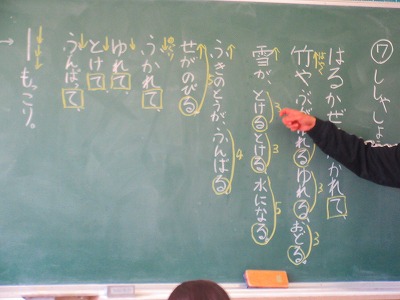 ⑦ ししゃしょ
はるかぜ かれて
竹やぶが れるゆれる、おどる
雪がとけるとける 水になる
ふきのとうが、ふんばる
せがのびる
ふかれて、
ゆれて
とけて
ふんばって、
もっこり。
3
3
3
3
5
4
5